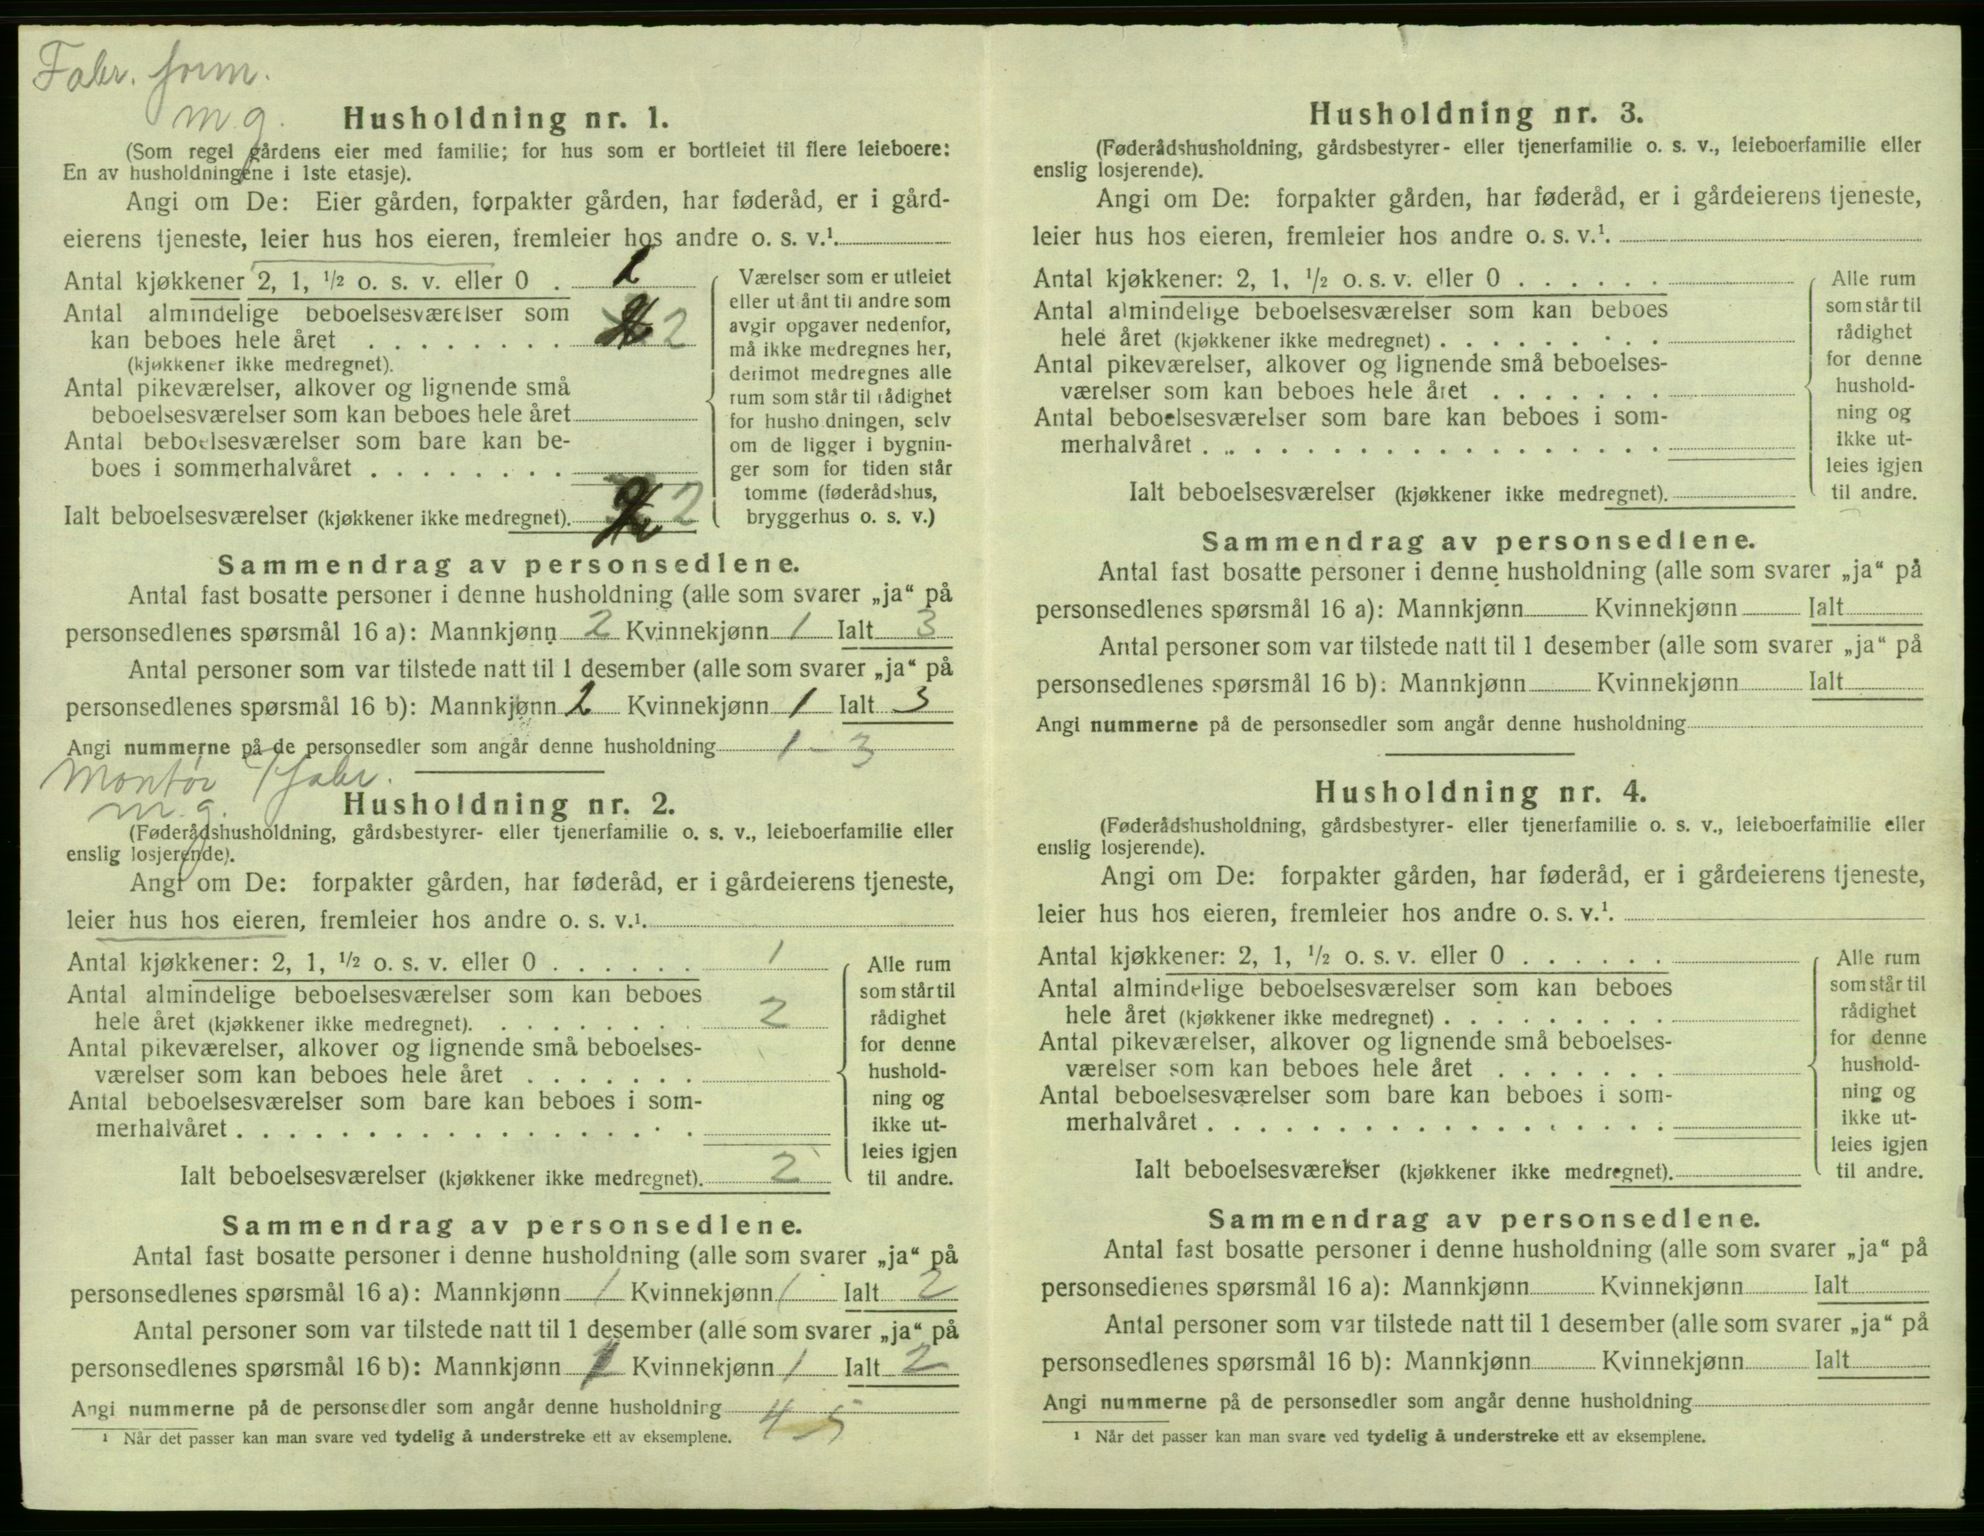 Fabr. form.
m. g.
Husholdning nr. 1.
(Som regel gårdens eier med familie; for hus som er bortleiet til flere leieboere:
En av husholdningene i 1ste etasje).
Angi om De: Eier gården, forpakter gården, har føderåd, er i gård-
eierens tjeneste, leier hus hos eieren, fremleier hos andre o. s. v.¹.
Antal kjøkkener 2, 1, ½ o. s. v. eller 0 . 1
Antal almindelige beboelsesværelser som
kan beboes hele året . . . . . . . . 2
(kjøkkener ikke medregnet).
Antal pikeværelser, alkover og lignende små
beboelsesværelser som kan beboes hele året
Antal beboelsesværelser som bare kan be-
boes i sommerhalvåret . . . . . . . .
Ialt beboelsesværelser (kjøkkener ikke medregnet). 2
Værelser som er utleiet
eller ut ånt til andre som
avgir opgaver nedenfor,
må ikke medregnes her,
derimot medregnes alle
rum som står til rådighet
for husho dningen, selv
om de ligger i bygnin-
ger som for tiden står
tomme (føderådshus,
bryggerhus o. s. v.)
Sammendrag av personsedlene.
Antal fast bosatte personer i denne husholdning (alle som svarer „ja“ på
personsedlenes spørsmål 16 a): Mannkjønn 2 Kvinnekjønn 1 Ialt 3
Antal personer som var tilstede natt til 1 desember (alle som svarer „ja“ på
personsedlenes spørsmål 16 b): Mannkjønn 2 Kvinnekjønn 1 Ialt 3
Angi nummerne på de personsedler som angår denne husholdning 1 - 3
Montør / fabr.
m. g.
Husholdning nr. 2.
(Føderådshusholdning, gårdsbestyrer- eller tjenerfamilie o. s. v., leieboerfamilie eller
enslig losjerende).
Angi om De: forpakter gården, har føderåd, er i gårdeierens tjeneste,
leier hus hos eieren, fremleier hos andre o. s. v.¹.
Antal kjøkkener: 2, 1, ½ o. s. v. eller 0 . . . . . . 1
Antal almindelige beboelsesværelser som kan beboes
hele året (kjøkkener ikke medregnet). . . . . . . . . 2
Antal pikeværelser, alkover og lignende små beboelses-
værelser som kan beboes hele året . . . . . . .
Antal beboelsesværelser som bare kan beboes i som-
merhalvåret . . . . . . . . . . . . . . . . . .
Ialt beboelsesværelser (kjøkkener ikke medregnet). 2
Alle rum
som står til
rådighet
for denne
hushold-
ning og
ikke ut-
leies igjen
til andre.
Sammendrag av personsedlene.
Antal fast bosatte personer i denne husholdning (alle som svarer „ja“ på
personsedlenes spørsmål 16 a): Mannkjønn 1 Kvinnekjønn 1 Ialt 2
Antal personer som var tilstede natt til 1 desember (alle som svarer „ja“ på
personsedlenes spørsmål 16 b): Mannkjønn 1 Kvinnekjønn 1 Ialt 2
Angi nummerne på de personsedler som angår denne husholdning 4 - 5
¹ Når det passer kan man svare ved tydelig å understreke ett av eksemplene.
Husholdning nr. 3.
(Føderådshusholdning, gårdsbestyrer- eller tjenerfamilie o. s. v., leieboerfamilie eller
enslig losjerende).
Angi om De: forpakter gården, har føderåd, er i gårdeierens tjeneste,
leier hus hos eieren, fremleier hos andre o. s. v.¹.
Antal kjøkkener: 2, 1, ½ o. s. v. eller 0 . . . . . .
Antal almindelige beboelsesværelser som kan beboes
hele året (kjøkkener ikke medregnet) . . . . . . . . .
Antal pikeværelser, alkover og lignende små beboelses-
værelser som kan beboes hele året . . . . . . .
Antal beboelsesværelser som bare kan beboes i som-
merhalvåret . . . . . . . . . . . . . . . . . .
Ialt beboelsesværelser (kjøkkener ikke medregnet).
Alle rum
som står til
rådighet
for denne
hushold-
ning og
ikke ut-
leies igjen
til andre.
Sammendrag av personsedlene.
Antal fast bosatte personer i denne husholdning (alle som svarer „ja“ på
personsedlenes spørsmål 16 a): Mannkjønn Kvinnekjønn Ialt
Antal personer som var tilstede natt til 1 desember (alle som svarer „ja“ på
personsedlenes spørsmål 16 b): Mannkjønn Kvinnekjønn Ialt
Angi nummerne på de personsedler som angår denne husholdning
Husholdning nr. 4.
(Føderådshusholdning, gårdsbestyrer- eller tjenerfamilie o. s. v., leieboerfamilie eller
enslig losjerende).
Angi om De: forpakter gården, har føderåd, er i gårdeierens tjeneste,
leier hus hos eieren, fremleier hos andre o. s. v.¹.
Antal kjøkkener: 2, 1, ½ o. s. v. eller 0 . . . . . .
Antal almindelige beboelsesværelser som kan beboes
hele året (kjøkkener ikke medregnet) . . . . . . . . .
Antal pikeværelser, alkover og lignende små beboelses-
værelser som kan beboes hele året . . . . . . .
Antal beboelsesværelser som bare kan beboes i som-
merhalvåret . . . . . . . . . . . . . . . . . .
Ialt beboelsesværelser (kjøkkener ikke medregnet).
Alle rum
som står til
rådighet
for denne
hushold-
ning og
ikke ut-
leies igjen
til andre.
Sammendrag av personsedlene.
Antal fast bosatte personer i denne husholdning (alle som svarer „ja“ på
personsedlenes spørsmål 16 a): Mannkjønn Kvinnekjønn Ialt
Antal personer som var tilstede natt til 1 desember (alle som svarer „ja“ på
personsedlenes spørsmål 16 b): Mannkjønn Kvinnekjønn Ialt
Angi nummerne på de personsedler som angår denne husholdning
¹ Når det passer kan man svare ved tydelig å understreke ett av eksemplene.